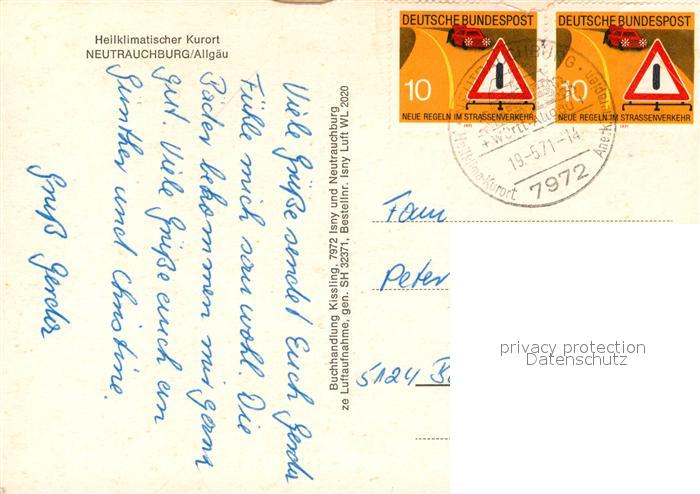 Heilklimatischer Kurort
NEUTRAUCHBURG/Allgäu
Viele Grüße sendet Euch Gerda
Fühle mich sauwohl. Die
Bäder bekommen mir ganz
gut. Viele Grüße auch an
Günther und Christine.
Gruß Gerda
Buchhandlung Kissling, 7972 Isny und Neutrauchburg
ze Luftaufnahme, gen. SH 32371, Bestellnr. Isny Luft WL 2020
DEUTSCHE BUNDESPOST
10
NEUE REGELN IM STRASSENVERKEHR
1971
DEUTSCHE BUNDESPOST
10
NEUE REGELN IM STRASSENVERKEHR
1971
19.-5.71.-14
7972
Fam
Peter
5124
privacy protection
Datenschutz